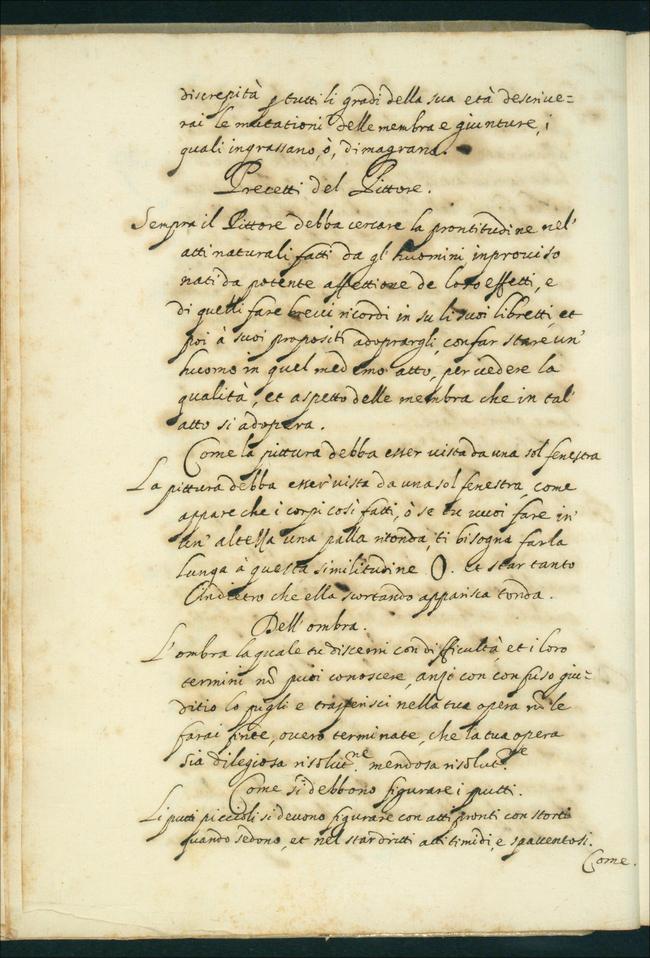 discrepità p tutti li gradi della sua età descriue=
rai le mutationi delle membra e giunture, i
quali ingrassano, ò, dimagrano.
Precetti del Pittore.
Sempra il Pittore debba cercare la prontitudine nel'
atti naturali fatti da gl' huomini inprouiso
nati da potente affettione de loro effetti, e
di quelli fare breui ricordi in su li suoi libretti, et
poi à suoi propositi adoprargli, con far stare un'
huomo in quel medemo atto, per uedere la
qualità, et aspetto delle membra che in tal'
atto si adopera.
Come la pittura debba esser uista da una sol fenestra
La pittura debba esser uista da una sol fenestra, come
appare che i corpi così fatti, ò se tu uuoi fare in'
un' altezza una palla ritonda, ti bisogna farla
lunga à questa similitudine O. et star tanto
Indietro che ella scortando apparisca tonda.
Dell' ombra.
L'ombra la quale tu discerni con difficultà, et i loro
termini nõ puoi conoscere, anzi con confuso giu=
ditio lo pigli e trasferisci nella tua opera nõ le
farai finite, ouero terminate, che la tua opera
sia dilegiosa risolut.ne mendosa risolut.ne
Come si debbono figurare i putti.
Li putti piccioli si deuono figurare con atti pronti con storti
quando sedono, et nel star dritti atti timidi, e spauentosi.
Come.